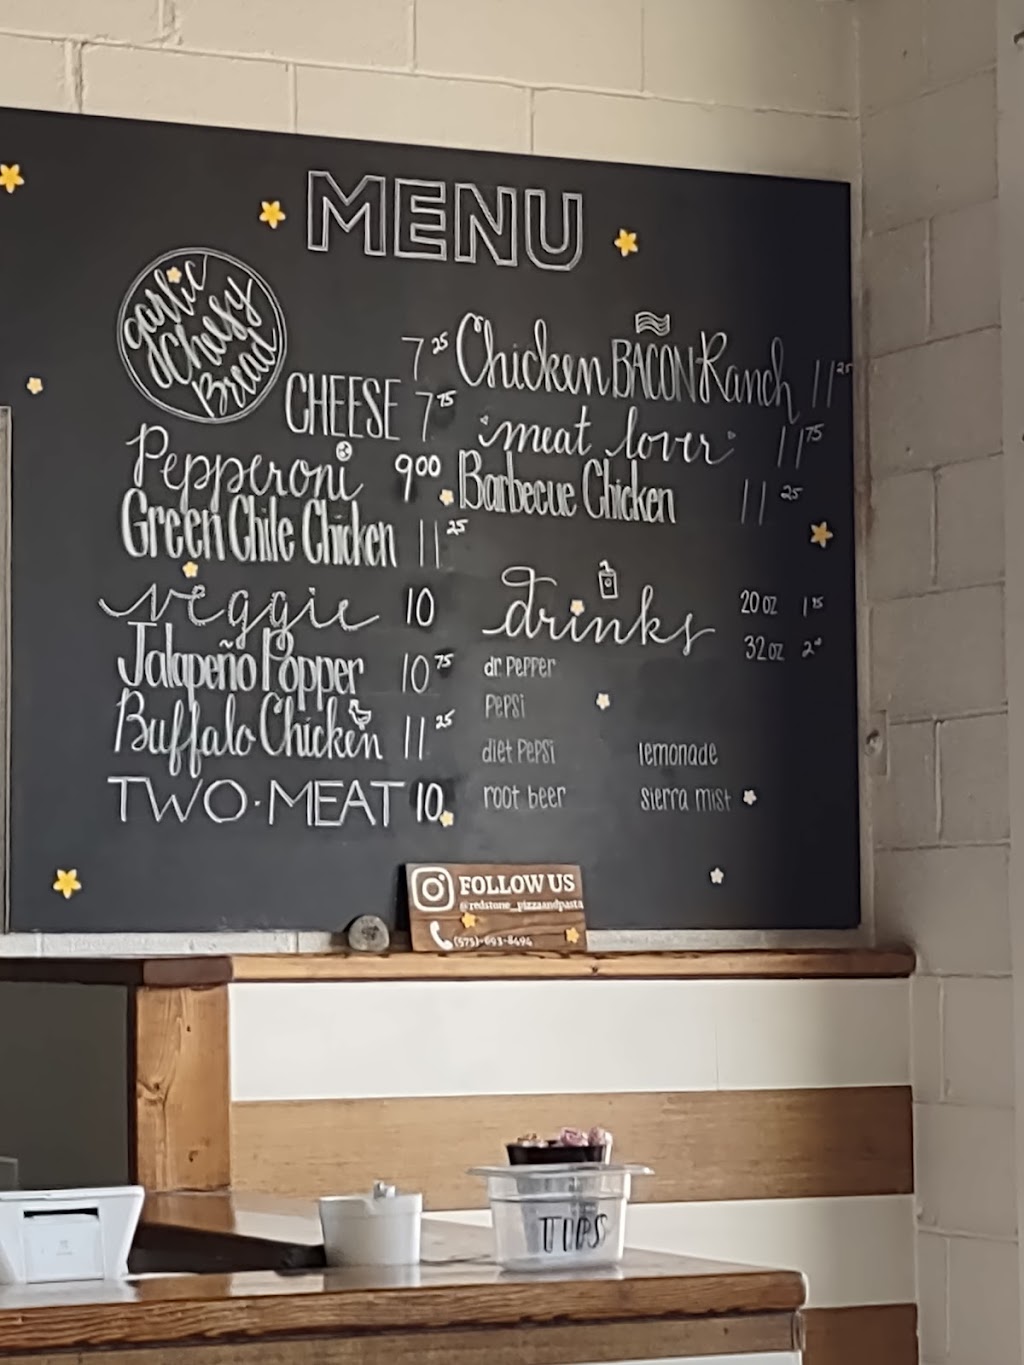 MENU
garlic Cheesy Bread 7 25
CHEESE 7 75
Pepperoni 9 00
Green Chile Chicken 11 25
veggie 10
Jalapeño Popper 10 75
Buffalo Chicken 11 25
TWO·MEAT 10
Chicken BACON Ranch 11 25
meat lover 11 75
Barbecue Chicken 11 25
drinks
20 oz 1
32 oz 2
dr. PePPer
PePsi
diet PePsi
root beer
lemonade
sierra mist
FOLLOW US
@redstone_pizzaandpasta
(575)-693-8494
TIPS